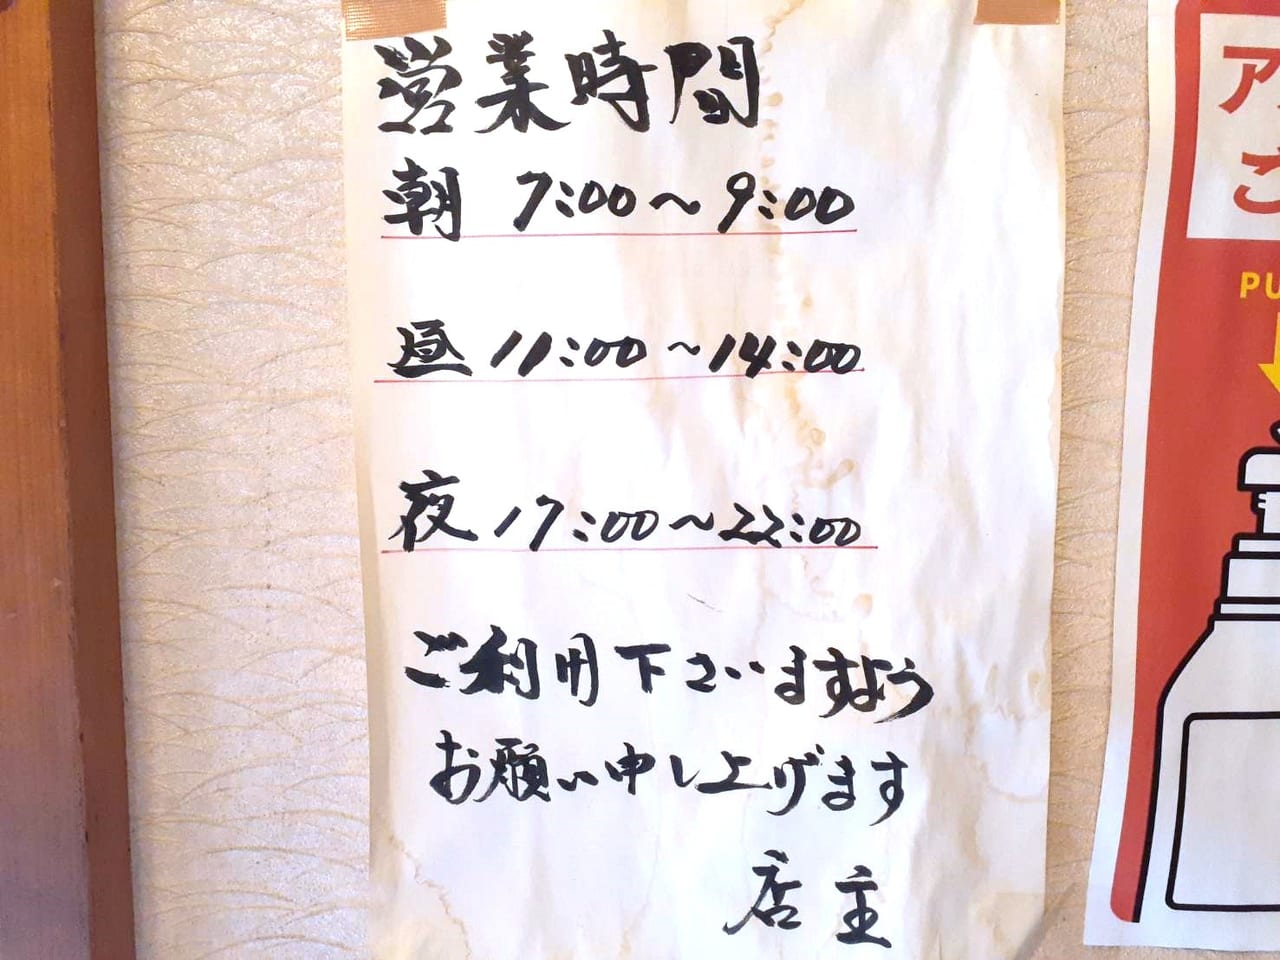 営業時間
朝 7:00～9:00
昼 11:00～14:00
夜 17:00～22:00
ご利用下さいますよう
お願い申し上げます
店主
ア
ご
PU